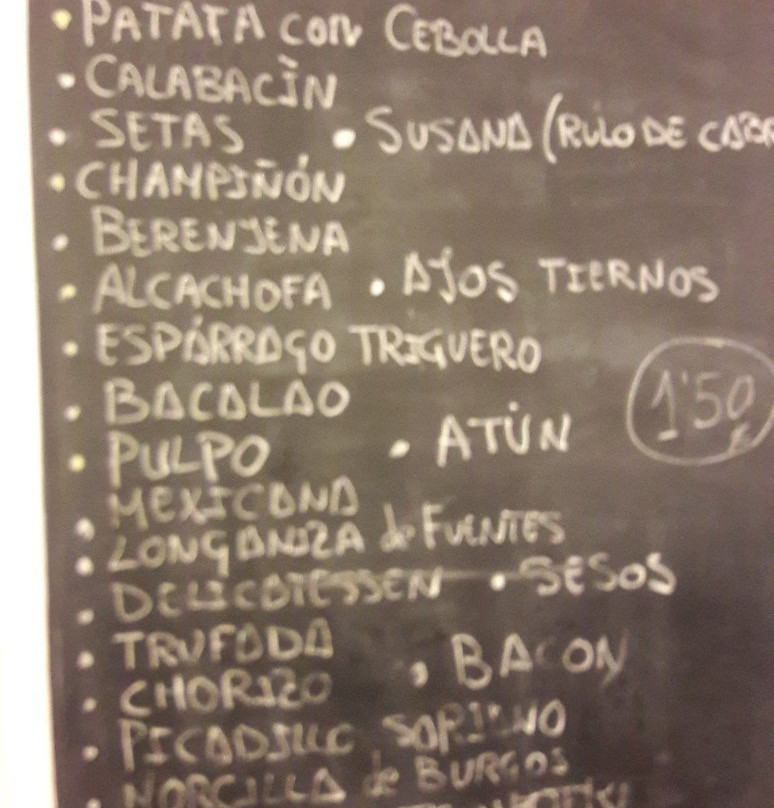 • PATATA con CEBOLLA
• CALABACÍN
• SETAS • SUSANA (RULO DE CABR
• CHAMPIÑÓN
• BERENJENA
• ALCACHOFA • AJOS TIERNOS
• ESPÁRRAGO TRIGUERO
• BACALAO
1'50
• PULPO • ATÚN
• MEXICANA
• LONGANIZA de FUENTES
• DELICATESSEN • SESOS
• TRUFADA
• CHORIZO • BACON
• PICADILLO SORIANO
• MORCILLA de BURGOS